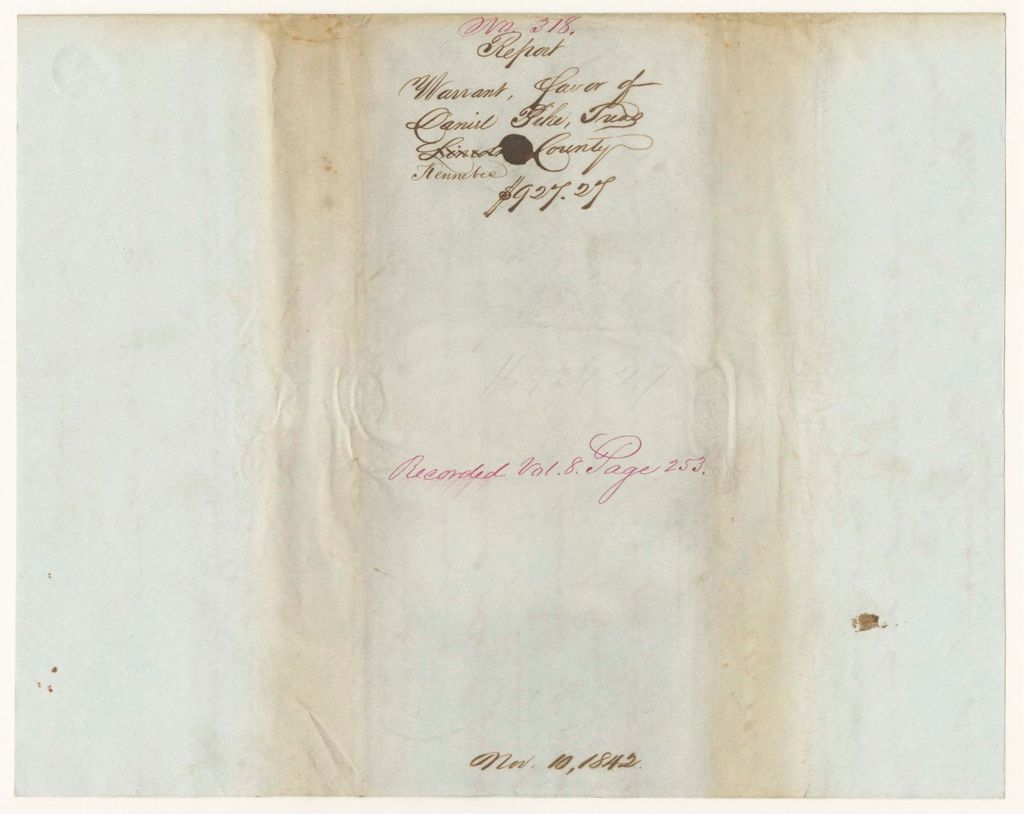 No 318.
Report
Warrant, favor of
Daniel Pike, Treas
Lincoln County
Kennebec
$927.27
$927 27
Recorded Vol. 8. Page 253.
Nov. 10, 1842.